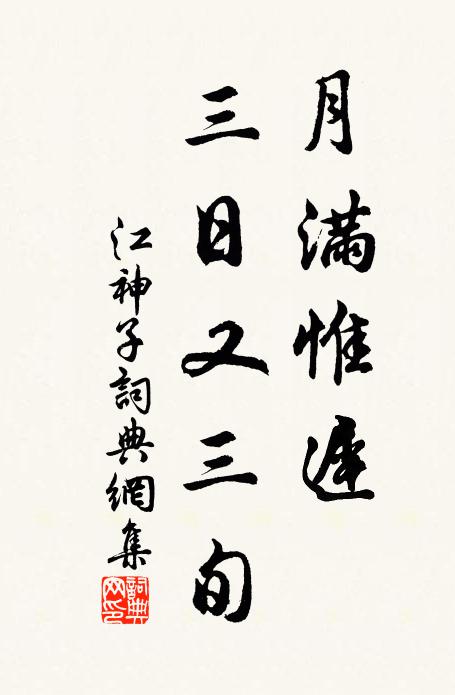 月滿惟遲
三日又三旬
江神子詞典網集
詞典網印